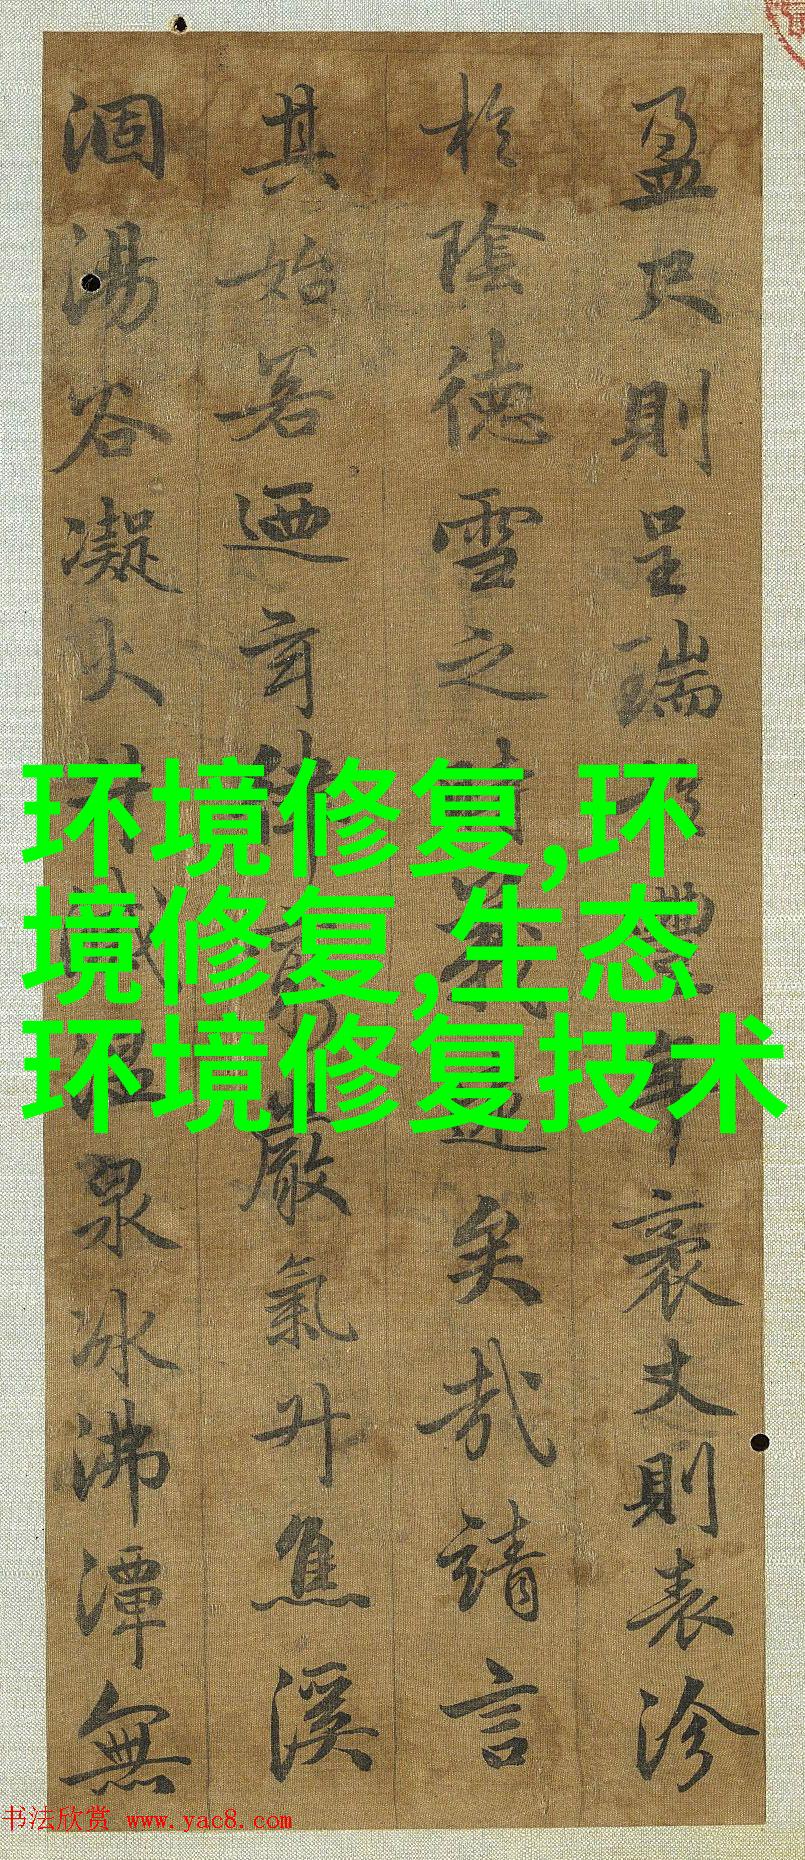 盈尺則呈瑞於豐年袤丈則表沴
於陰德雪之時義遠矣哉請言
其始若迺玄律窮嚴氣升焦溪
涸湯谷凝火井滅温泉冰沸潭無
环境修复,环
境修复,生态
环境修复技术
书法欣赏 www.yac8.com